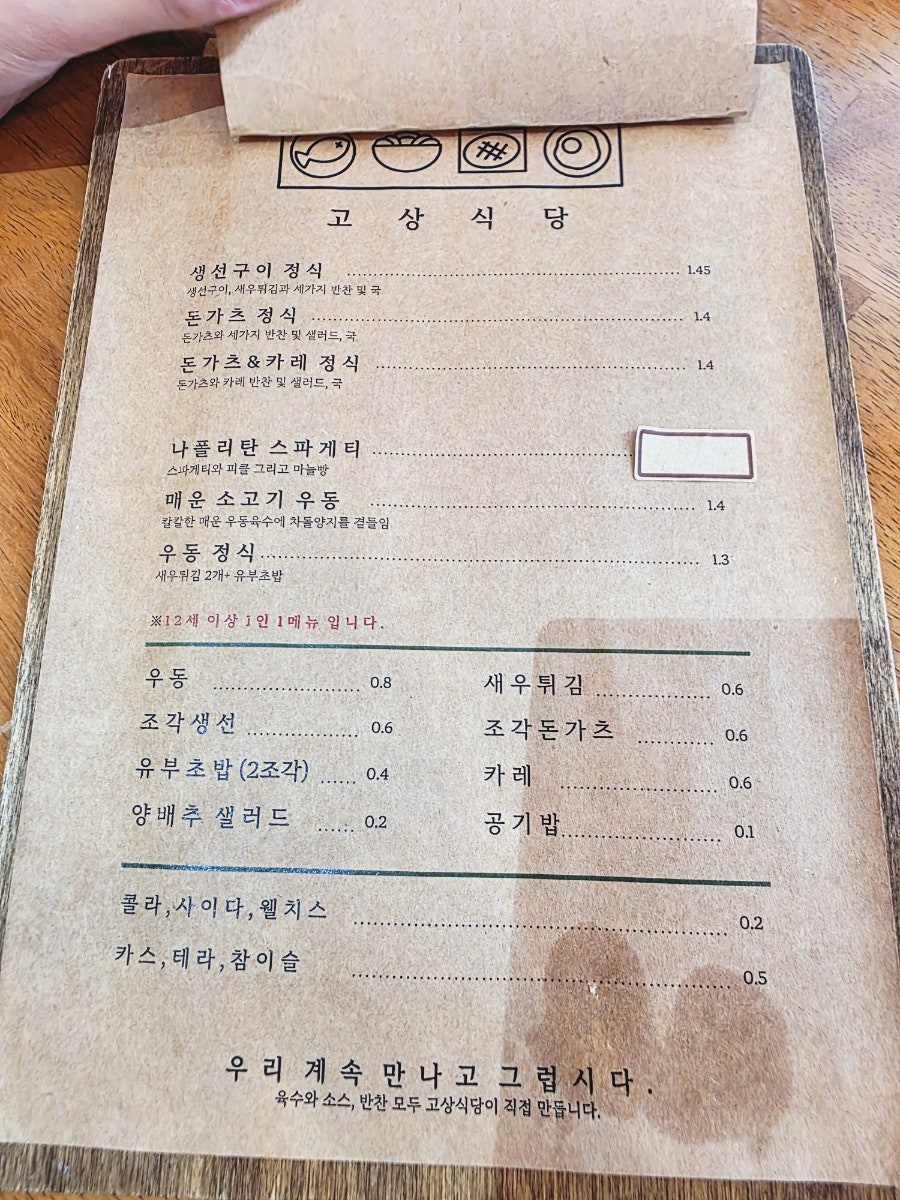 고상식당
생선구이 정식 1.45
생선구이, 새우튀김과 세가지 반찬 및 국
돈가츠 정식 1.4
돈가츠와 세가지 반찬 및 샐러드, 국
돈가츠&카레 정식 1.4
돈가츠와 카레 반찬 및 샐러드, 국
나폴리탄 스파게티
스파게티와 피클 그리고 마늘빵
매운 소고기 우동 1.4
칼칼한 매운 우동육수에 차돌양지를 곁들임
우동 정식 1.3
새우튀김 2개+ 유부초밥
※12세 이상 1인 1메뉴 입니다.
우동 0.8 새우튀김 0.6
조각생선 0.6 조각돈가츠 0.6
유부초밥 (2조각) 0.4 카레 0.6
양배추 샐러드 0.2 공기밥 0.1
콜라,사이다,웰치스 0.2
카스,테라,참이슬 0.5
우리 계속 만나고 그럽시다.
육수와 소스, 반찬 모두 고상식당이 직접 만듭니다.